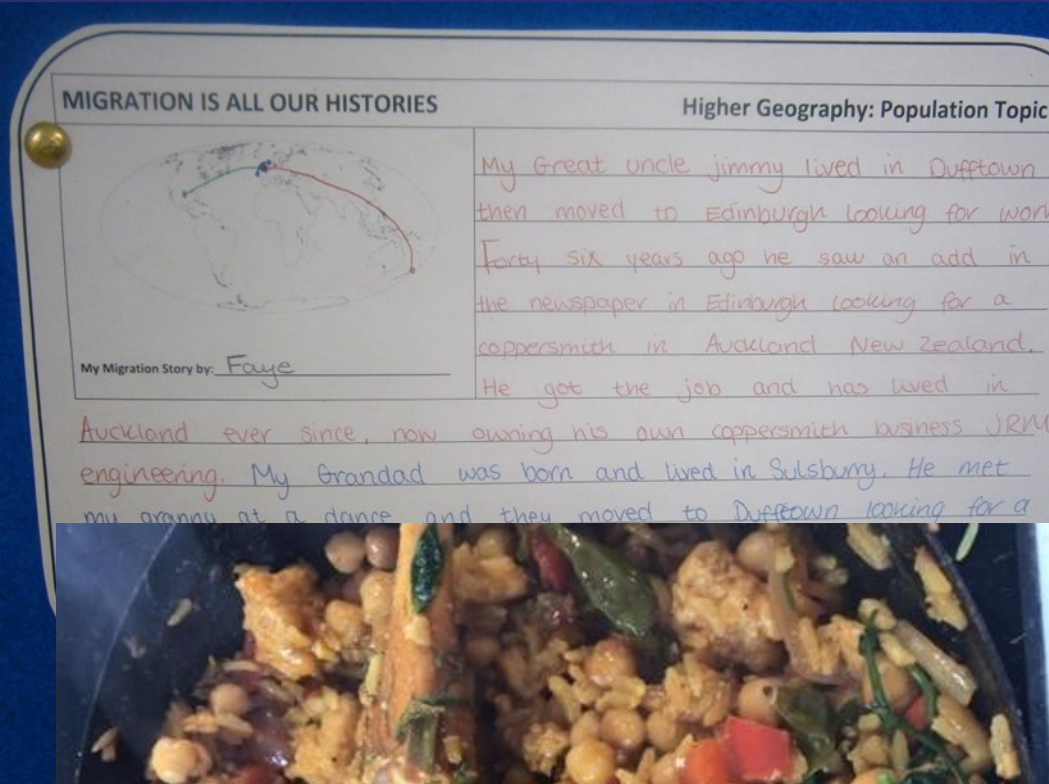 MIGRATION IS ALL OUR HISTORIES
Higher Geography: Population Topic
My Great uncle jimmy lived in Dufftown
then moved to Edinburgh looking for
Forty six years ago he saw an add in
the newspaper in Edinburgh looking for a
coppersmith in Auckland New Zealand.
He got the job and has lived in
My Migration Story by: Faye
Auckland ever since, now owning his own coppersmith business JRM
engineering. My Grandad was born and lived in Sulsburry. He met
my granny at a dance and they moved to Dufftown looking for a